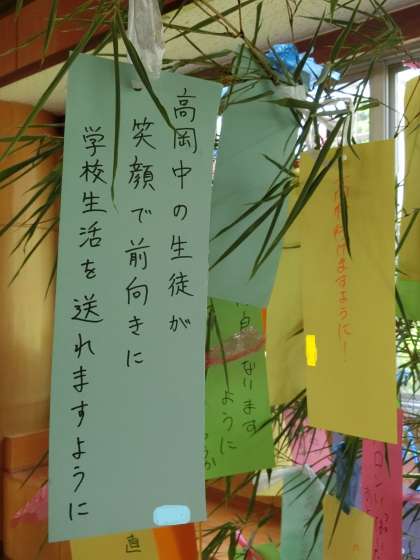 高岡中の生徒が
笑顔で前向きに
学校生活を送れますように
ますように！
なります
ように
直